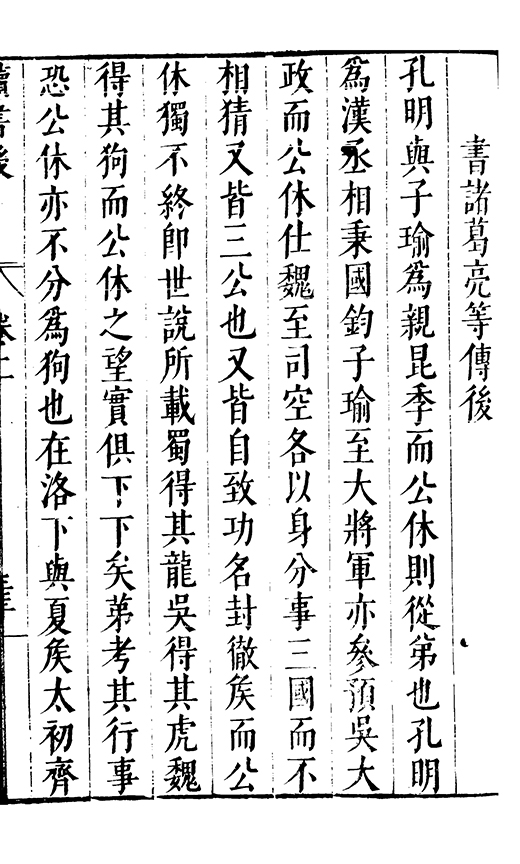 書諸葛亮等傳後
孔明與子瑜爲親昆季而公休則從弟也孔明
爲漢丞相秉國鈞子瑜至大將軍亦參預吳大
政而公休仕魏至司空各以身分事三國而不
相猜又皆三公也又皆自致功名封徹矦而公
休獨不終卽世說所載蜀得其龍吳得其虎魏
得其狗而公休之望實俱下下矣苐考其行事
恐公休亦不分爲狗也在洛下與夏矦太初齊
讀書後